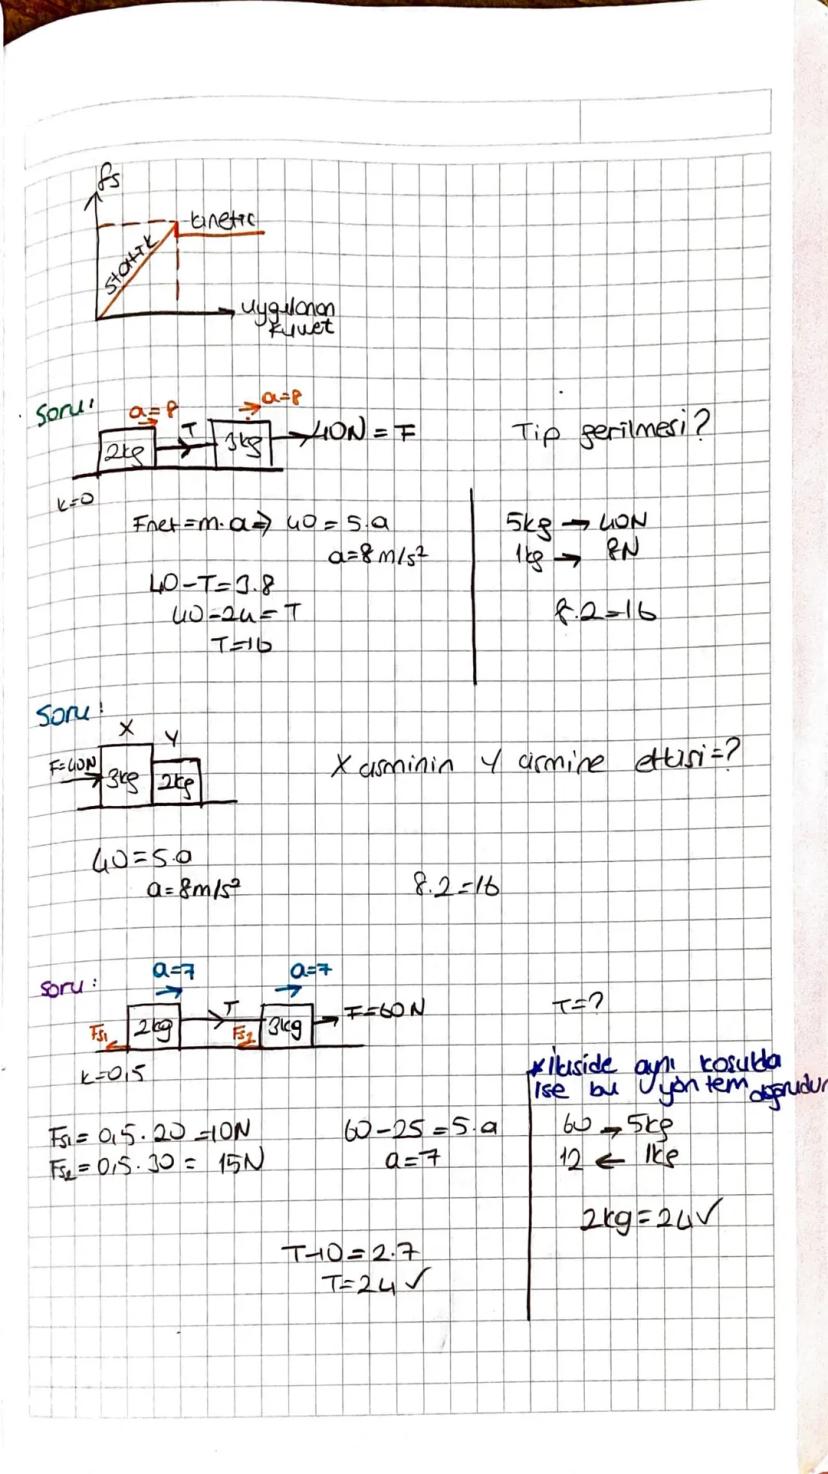 fs
kinetic
statik
uygulanan
kuvvet
Soru:
a=8
a=8
2kg
T
3kg
40N = F
Tip gerilmesi?
k=0
Fnet=m.a⇒ 40=5.a
a=8m/s²
40-T=3.8
40-24=T
T=16
5kg → 40N
1kg → 8N
8.2=16
Soru:
X
Y
F=40N
3kg
2kg
X cisminin Y cismine etkisi=?
40=5.a
a=8m/s²
8.2=16
Soru:
a=7
a=7
Fs1
2kg
T
Fs2
3kg
F=60N
T=?
k=0,5
*İkiside aynı koşulda
ise bu yöntem doğrudur
Fs1=0,5.20=10N
Fs2=0,5.30= 15N
60-25=5.a
a=7
60 → 5kg
12 ← 1kg
2kg=24✓
T-10=2.7
T=24✓